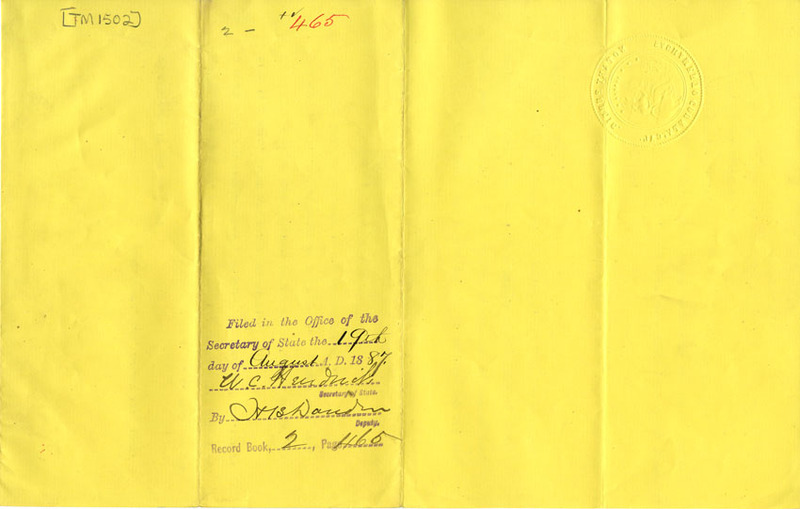 [TM 1502]
2 - 465
Filed in the Office of the
Secretary of State the 19th
day of August A. D. 1887.
W. C. Hendricks
Secretary of State.
By
Deputy.
Record Book, 2, Page 465